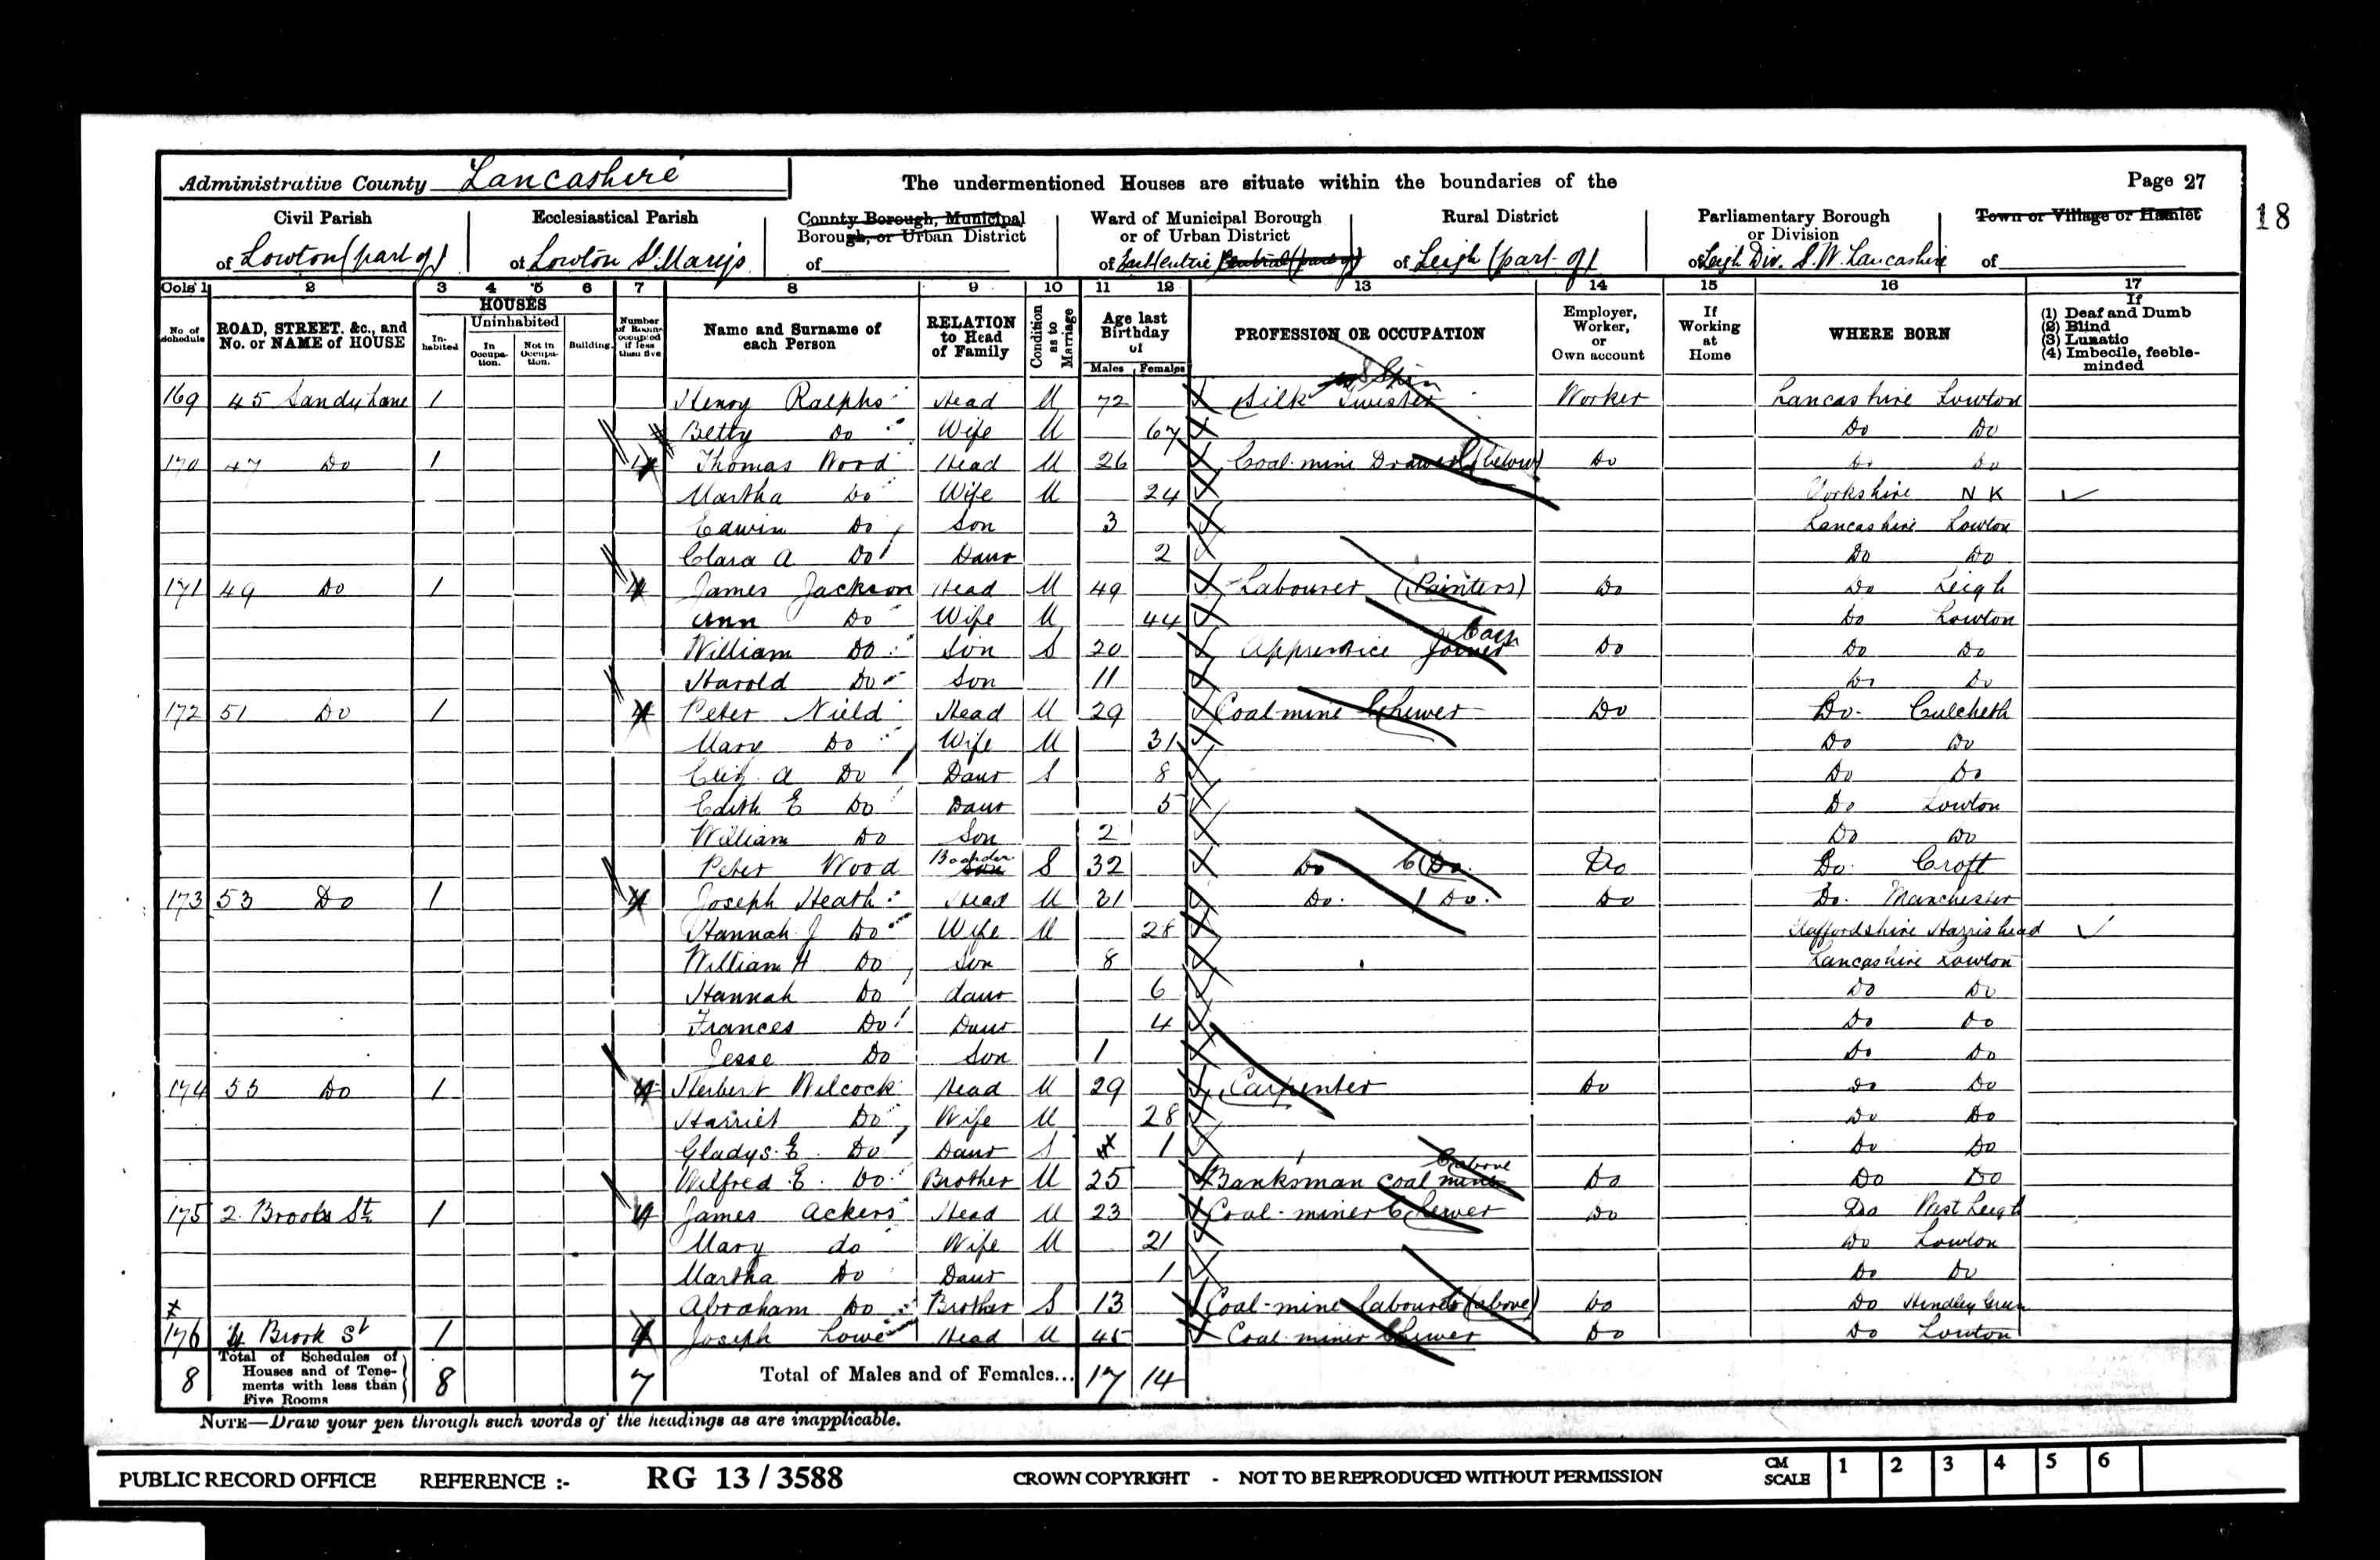 Administrative County Lancashire The undermentioned Houses are situate within the boundaries of the Page 27
18
Civil Parish Ecclesiastical Parish County Borough, Municipal Borough, or Urban District Ward of Municipal Borough or of Urban District Rural District Parliamentary Borough or Division Town or Village or Hamlet
of Lowton (part of) of Lowton St Marys of of of Leigh (part of) of Leigh Div. S.W. Lancashire of
Cols 1 2 3 4 5 6 7 8 9 10 11 12 13 14 15 16 17
No. of Schedule ROAD, STREET, &c., and No. or NAME of HOUSE HOUSES In-habited Uninhabited In Occupa-tion. Not in Occupa-tion. Building. Number of Rooms occupied if less than five Name and Surname of each Person RELATION to Head of Family Condition as to Marriage Age last Birthday of Males Females PROFESSION OR OCCUPATION Employer, Worker, or Own account If Working at Home WHERE BORN If (1) Deaf and Dumb (2) Blind (3) Lunatic (4) Imbecile, feeble-minded
169 45 Sandy Lane 1 Henry Ralphs Head M 72 Silk Twister Worker Lancashire Lowton
Betty Do Wife M 67 Do Do
170 47 Do 1 4 Thomas Wood Head M 26 Coal mine Drawer (below) Do Do Do
Martha Do Wife M 24 Yorkshire N K
Edwin Do Son 3 Lancashire Lowton
Clara A Do Daur 2 Do Do
171 49 Do 1 4 James Jackson Head M 49 Labourer (Painters) Do Do Leigh
Ann Do Wife M 44 Do Lowton
William Do Son S 20 Apprentice Joiner Do Do Do
Harold Do Son 11 Do Do
172 51 Do 1 4 Peter Nield Head M 29 Coal mine Hewer Do Do Culcheth
Mary Do Wife M 31 Do Do
Eliz. A Do Daur S 8 Do Do
Edith E Do Daur 5 Do Lowton
William Do Son 2 Do Do
Peter Wood Boarder S 32 Do Do Do Do Croft
173 53 Do 1 4 Joseph Heath Head M 31 Do Do Do Do Manchester
Hannah J Do Wife M 28 Staffordshire Harrishead
William H Do Son 8 Lancashire Lowton
Hannah Do daur 6 Do Do
Frances Do Daur 4 Do Do
Jesse Do Son 1 Do Do
174 55 Do 1 4 Herbert Wilcock Head M 29 Carpenter Do Do Do
Harriet Do Wife M 28 Do Do
Gladys E. Do Daur S 1 Do Do
Wilfred E. Do Brother M 25 Banksman Coal mine above Do Do Do
175 2 Brook St 1 4 James Ackers Head M 23 Coal-miner Hewer Do Do West Leigh
Mary do Wife M 21 Do Lowton
Martha Do Daur 1 Do Do
Abraham Do Brother S 13 Coal-mine labourer (above) Do Do Hindley Green
176 4 Brook St 1 4 Joseph Lowe Head M 45 Coal miner Hewer Do Do Lowton
8 Total of Schedules of Houses and of Tene-ments with less than Five Rooms 8 7 Total of Males and of Females... 17 14
NOTE—Draw your pen through such words of the headings as are inapplicable.
PUBLIC RECORD OFFICE REFERENCE :- RG 13 / 3588 CROWN COPYRIGHT - NOT TO BE REPRODUCED WITHOUT PERMISSION CM SCALE 1 2 3 4 5 6